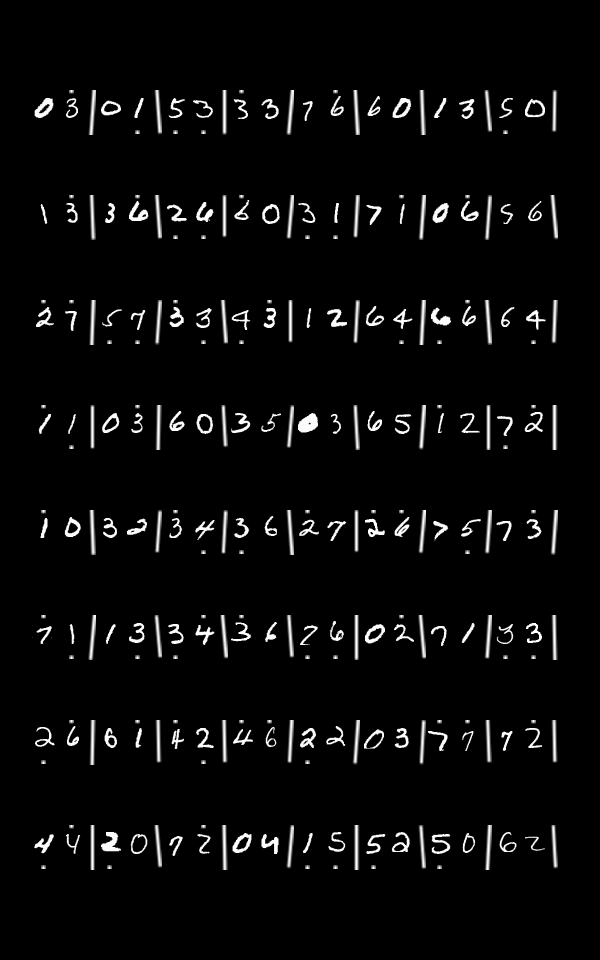 0 3̇ | 0 1̣ | 5̣ 3̣ | 3̇ 3 | 7 6̇ | 6 0 | 1 3 | 5̣ 0 |
1 3̇ | 3 6̇ | 2̣ 6̣ | 6̇ 0 | 3̣ 1̣ | 7 1̇ | 0 6̇ | 5 6 |
2̇ 7̇ | 5̣ 7̣ | 3̇ 3̣ | 4̣ 3̇ | 1 2 | 6 4̣ | 6̣ 6̇ | 6 4̣ |
1̇ 1̣ | 0 3̇ | 6 0 | 3 5 | 0 3 | 6 5 | 1̇ 2 | 7̣ 2̇ |
1̇ 0 | 3 2 | 3̇ 4̣ | 3̣ 6 | 2̇ 7 | 2̇ 6̇ | 7 5̣ | 7 3̇ |
7̇ 1̣ | 1 3̣ | 3̣ 4̇ | 3̇ 6 | 2̣ 6̣ | 0 2̇ | 7 1 | 3̣ 3̣ |
2̣ 6̇ | 6 1̣ | 4̇ 2̣ | 4̇ 6̇ | 2̣ 2 | 0 3 | 7̇ 7̇ | 7 2̇ |
4̣ 4̇ | 2̣ 0 | 7 2̇ | 0 4 | 1̣ 5̣ | 5̣ 2 | 5̣ 0 | 6 2 |